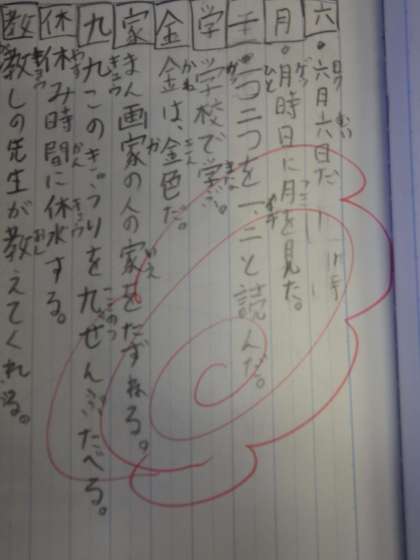 六・六月六日だ
月・月時日に月を見た。
一つ二つを一、二と読んだ。
学 学校で学ぶ。
金 金は、金色だ。
家 まん画家の人の家をたずねる。
九 九このきゅうりを九ぜんぶたべる。
休 休み時間に休水する。
教 教しの先生が教えてくれる。